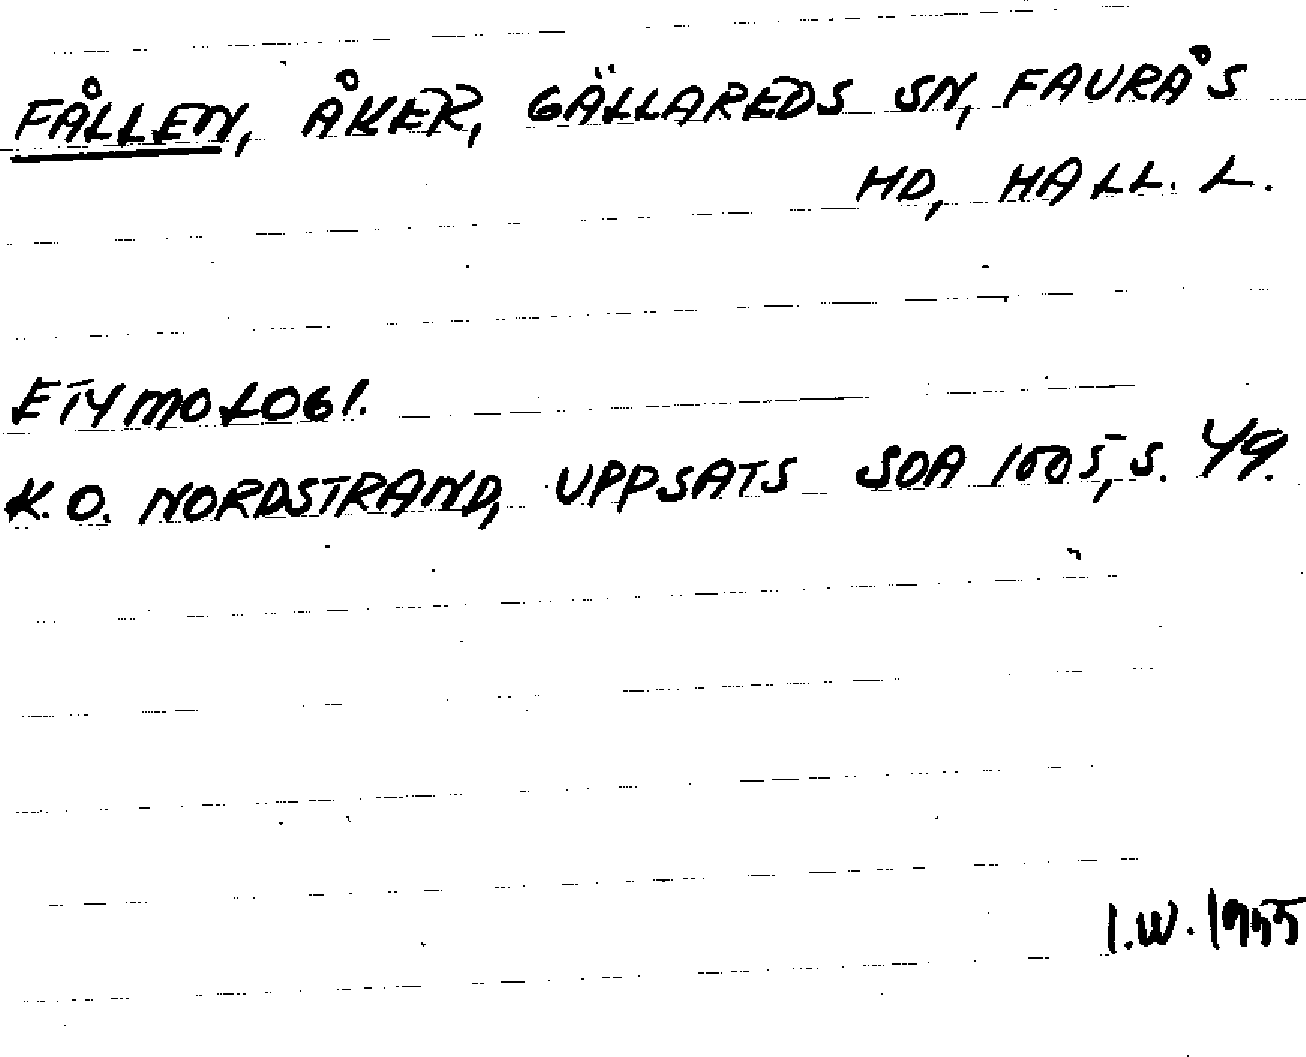 FÅLLEN, ÅKER, GÄLLAREDS SN, FAURÅS
HD, HALL. L.
ETYMOLOGI.
K.O. NORDSTRAND, UPPSATS SOA 1005, S. 49.
I.W. 1955